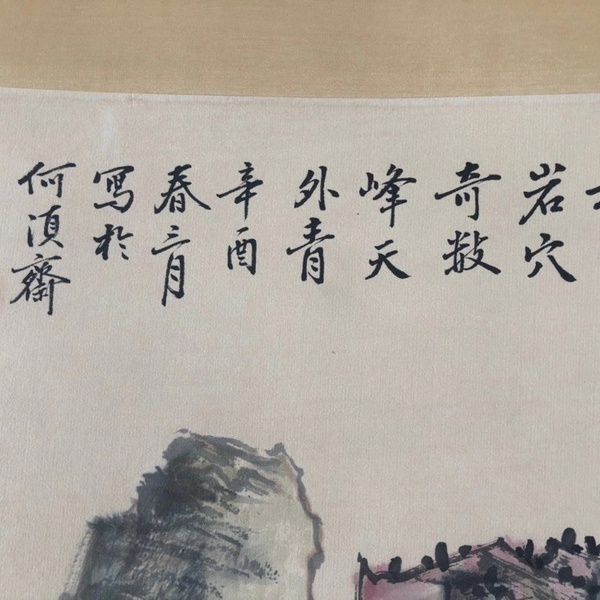 岩穴
奇数
峰天
外青
辛酉
春三月
写於
何須齋